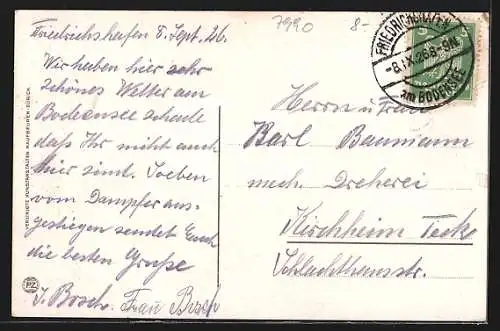 7990
8-
Friedrichshafen 8. Sept. 26.
Wir haben hier sehr
schönes Wetter am
Bodensee schade
daß Ihr nicht auch
hier sind. Soeben
vom Dampfer aus-
gestiegen sendet Euch
die besten Grüße
J. Bosch. Frau Bosch
FRIEDRICHSHAFEN
-8.IX.26.8-9N.
am BODENSEE
Herrn u. Frau
Karl Baumann
mech. Dreherei
Kirchheim Teck
Schlachthausstr.
VEREINIGTE KUNSTANSTALTEN KAUFBEUREN
PZ